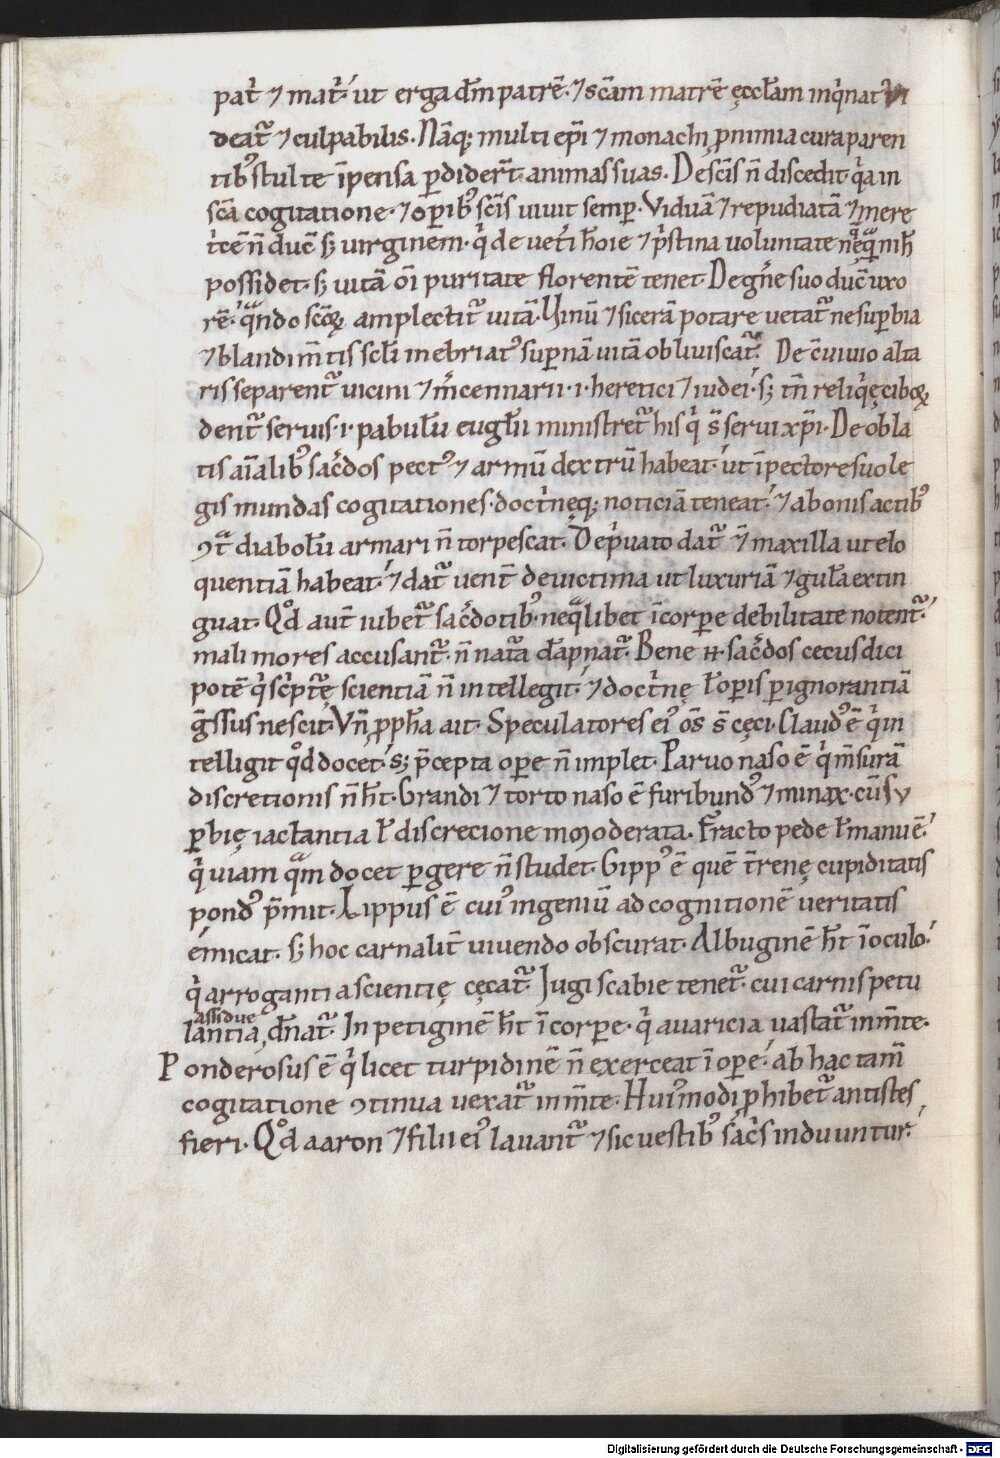 pat̄ ⁊ mat̄. ut erga dm̄ patrē. ⁊ scām matrē ęccłam inqͥnat᷑ ui
deat᷑ ⁊ culpabilis. Nāq; multi epī ⁊ monachi ꝓ nimia cura paren
tibꝰ stulte īpensa ꝑdidert̄ animas suas. De scīs n̄ discedit. qͥa in
scā cogitatione. ⁊ oꝑibꝰ scīs uiuit semꝑ. Viduā ⁊ repudiatā ⁊ mere
tͥcē n̄ ducē sꝫ uirginem. qͥ de uetͥi hōie ⁊ pͥstina uoluntate neqͣqͣ nih̄
possidet. sꝫ uitā oī puritate florentē tenet. De gn̄e suo ducē uxo
rē. qͣndo scōꝝ amplectit᷑ uitā. Uinū ⁊ sicerā potare uetat᷑ ne suꝑbia
⁊ blandim̄tis scłi inebriatꝰ suꝑnā uitā obliuiscat᷑. De cōuiuio alta
ris separent᷑ uicini ⁊ m̄cennarii .i. heretici ⁊ iudei. sꝫ tn̄ reliqͥę ciboꝝ
dent᷑ seruis .i. pabułu eugłii ministret᷑ his qͥ s̄ serui xp̄i. De obla
tis aīalibꝰ sac̄dos pectꝰ ⁊ armū dextrū habeat. ut ī pectore suo le
gis mundas cogitationes. doctͥneq; noticiā teneat. ⁊ a bonis actibꝰ
ꝯtͣ diabołu armari n̄ torpescat. De pͥuato dat᷑ ⁊ maxilla ut elo
quentiā habeat. ⁊ dat᷑ uent̄ de uictima ut luxuriā ⁊ guła extin
guat. Qd̊ aut̄ iubet᷑ sac̄dotibꝰ. neqͣlibet ī corꝑe debilitate notent᷑.
mali mores accusant᷑. n̄ nat᷑a dāpnat᷑. Bene .n. sac̄dos cecus dici
potē qͥ scͥptͣę scientiā n̄ intellegit. ⁊ doctͥnę ł oꝑis ꝑ ignorantiā
gͣssus nescit. Vn̄ ꝓph̄a ait. Speculatores eiꝰ ōs s̄ cęci. Claudꝰ ē qͥ in
telligit qd̊ docet. sꝫ p̄cepta oꝑe n̄ implet. Paruo naso ē qͥ m̄surā
discretionis n̄ ht̄. Grandi ⁊ torto naso ē furibundꝰ ⁊ minax. cūsu
ꝑbię iactantia ł discrecione inmoderata. Fracto pede ł manu ē.
qͥ uiam qͣm docet ꝑgere n̄ studet. Gippꝰ ē quē t̄renę cupiditatis
pondꝰ p̄mit. Lippus ē cuiꝰ ingeniū ad cognitionē ueritatis
emicat. sꝫ hoc carnalit̄ uiuendo obscurat. Albuginē ht̄ ī oculo.
qͥ arroganti a scientię cęcat᷑. Jugi scabie tenet᷑. cui carnis petu
lantia assidue dn̄at᷑. Inpetiginē ht̄ ī corꝑe. qͥ auaricia uastat᷑ in m̄te.
Ponderosus ē qͥ licet turpidinē n̄ exerceat ī oꝑe. ab hac tam̄
cogitatione ꝯtinua uexat᷑ in m̄te. Huiꝰmodi ꝓhibet᷑ antistes
fieri. Qd̊ aaron ⁊ filii eiꝰ lauant᷑ ⁊ sic uestibꝰ sac̄s induuntur.
Digitalisierung gefördert durch die Deutsche Forschungsgemeinschaft - DFG